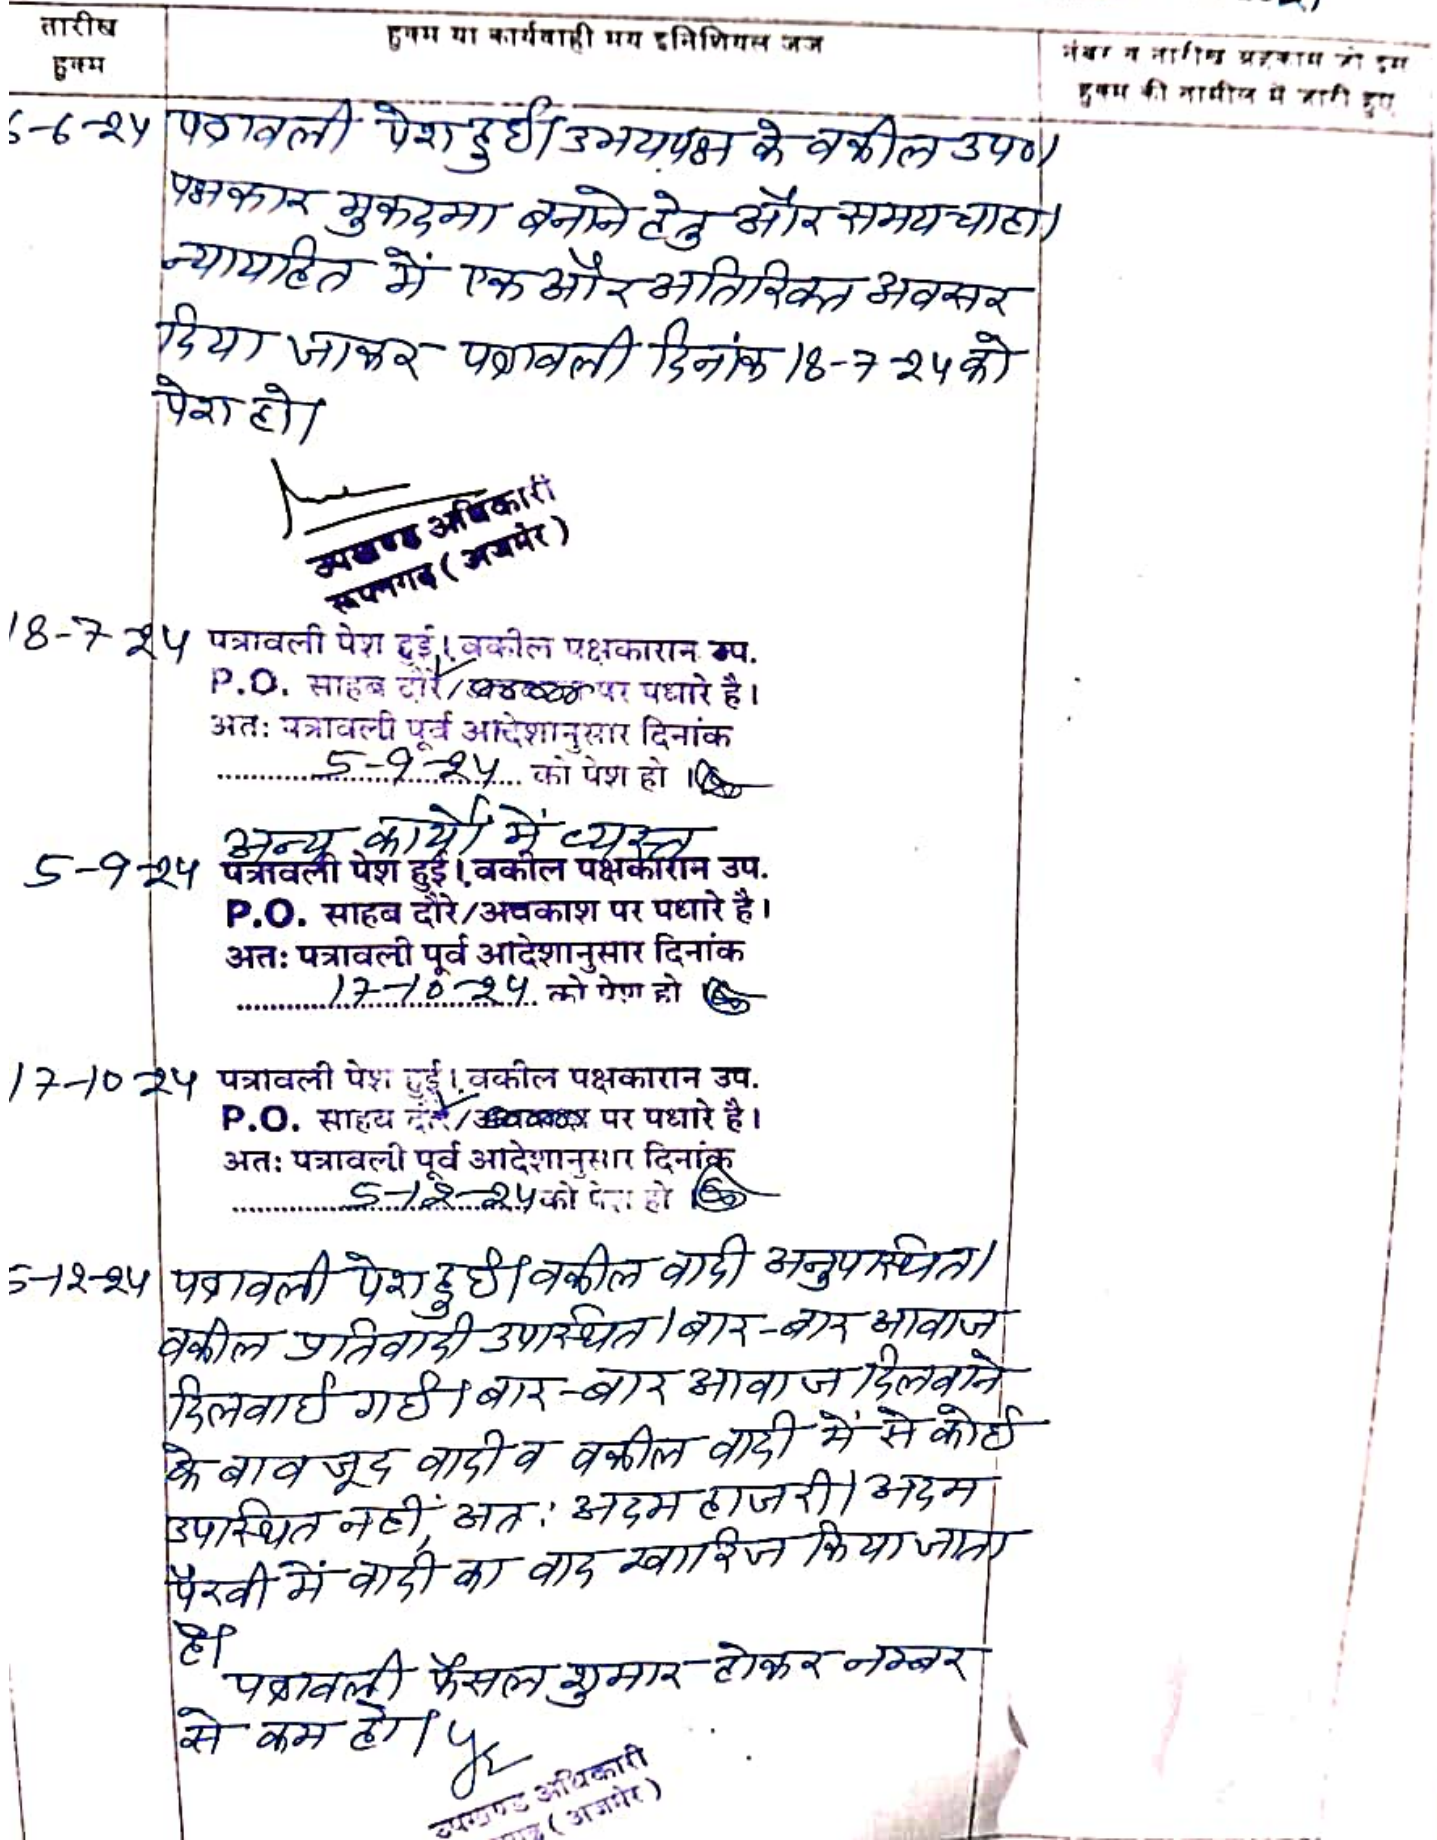 तारीख
हुक्म
हुक्म या कार्यवाही मय इनिशियल जज
नंबर व तारीख अहकाम जो इस
हुक्म की तामील में जारी हुए
5-6-24 पत्रावली पेश हुई। उभयपक्ष के वकील उप०।
पक्षकार मुकदमा बनाने हेतु और समय चाहा।
न्यायहित में एक और अतिरिक्त अवसर
दिया जाकर पत्रावली दिनांक 18-7-24 को
पेश हो।
उपखण्ड अधिकारी
रूपनगढ़ (अजमेर)
18-7-24 पत्रावली पेश हुई। वकील पक्षकारान उप.
P.O. साहब दौरे/ पर पधारे है।
अतः पत्रावली पूर्व आदेशानुसार दिनांक
5-9-24 को पेश हो।
अन्य कार्यों में व्यस्त
5-9-24 पत्रावली पेश हुई। वकील पक्षकारान उप.
P.O. साहब दौरे/अवकाश पर पधारे है।
अतः पत्रावली पूर्व आदेशानुसार दिनांक
17-10-24 को पेश हो
17-10-24 पत्रावली पेश हुई। वकील पक्षकारान उप.
P.O. साहब दौरे/अवकाश पर पधारे है।
अतः पत्रावली पूर्व आदेशानुसार दिनांक
5-12-24 को पेश हो।
5-12-24 पत्रावली पेश हुई। वकील वादी अनुपस्थित।
वकील प्रतिवादी उपस्थित। बार-बार आवाज
दिलवाई गई। बार-बार आवाज दिलवाने
के बावजूद वादी व वकील वादी में से कोई
उपस्थित नहीं, अतः अदम हाजरी। अदम
पैरवी में वादी का वाद खारिज किया जाता
है।
पत्रावली फैसल शुमार होकर नम्बर
से कम हो।
उपखण्ड अधिकारी
(अजमेर)